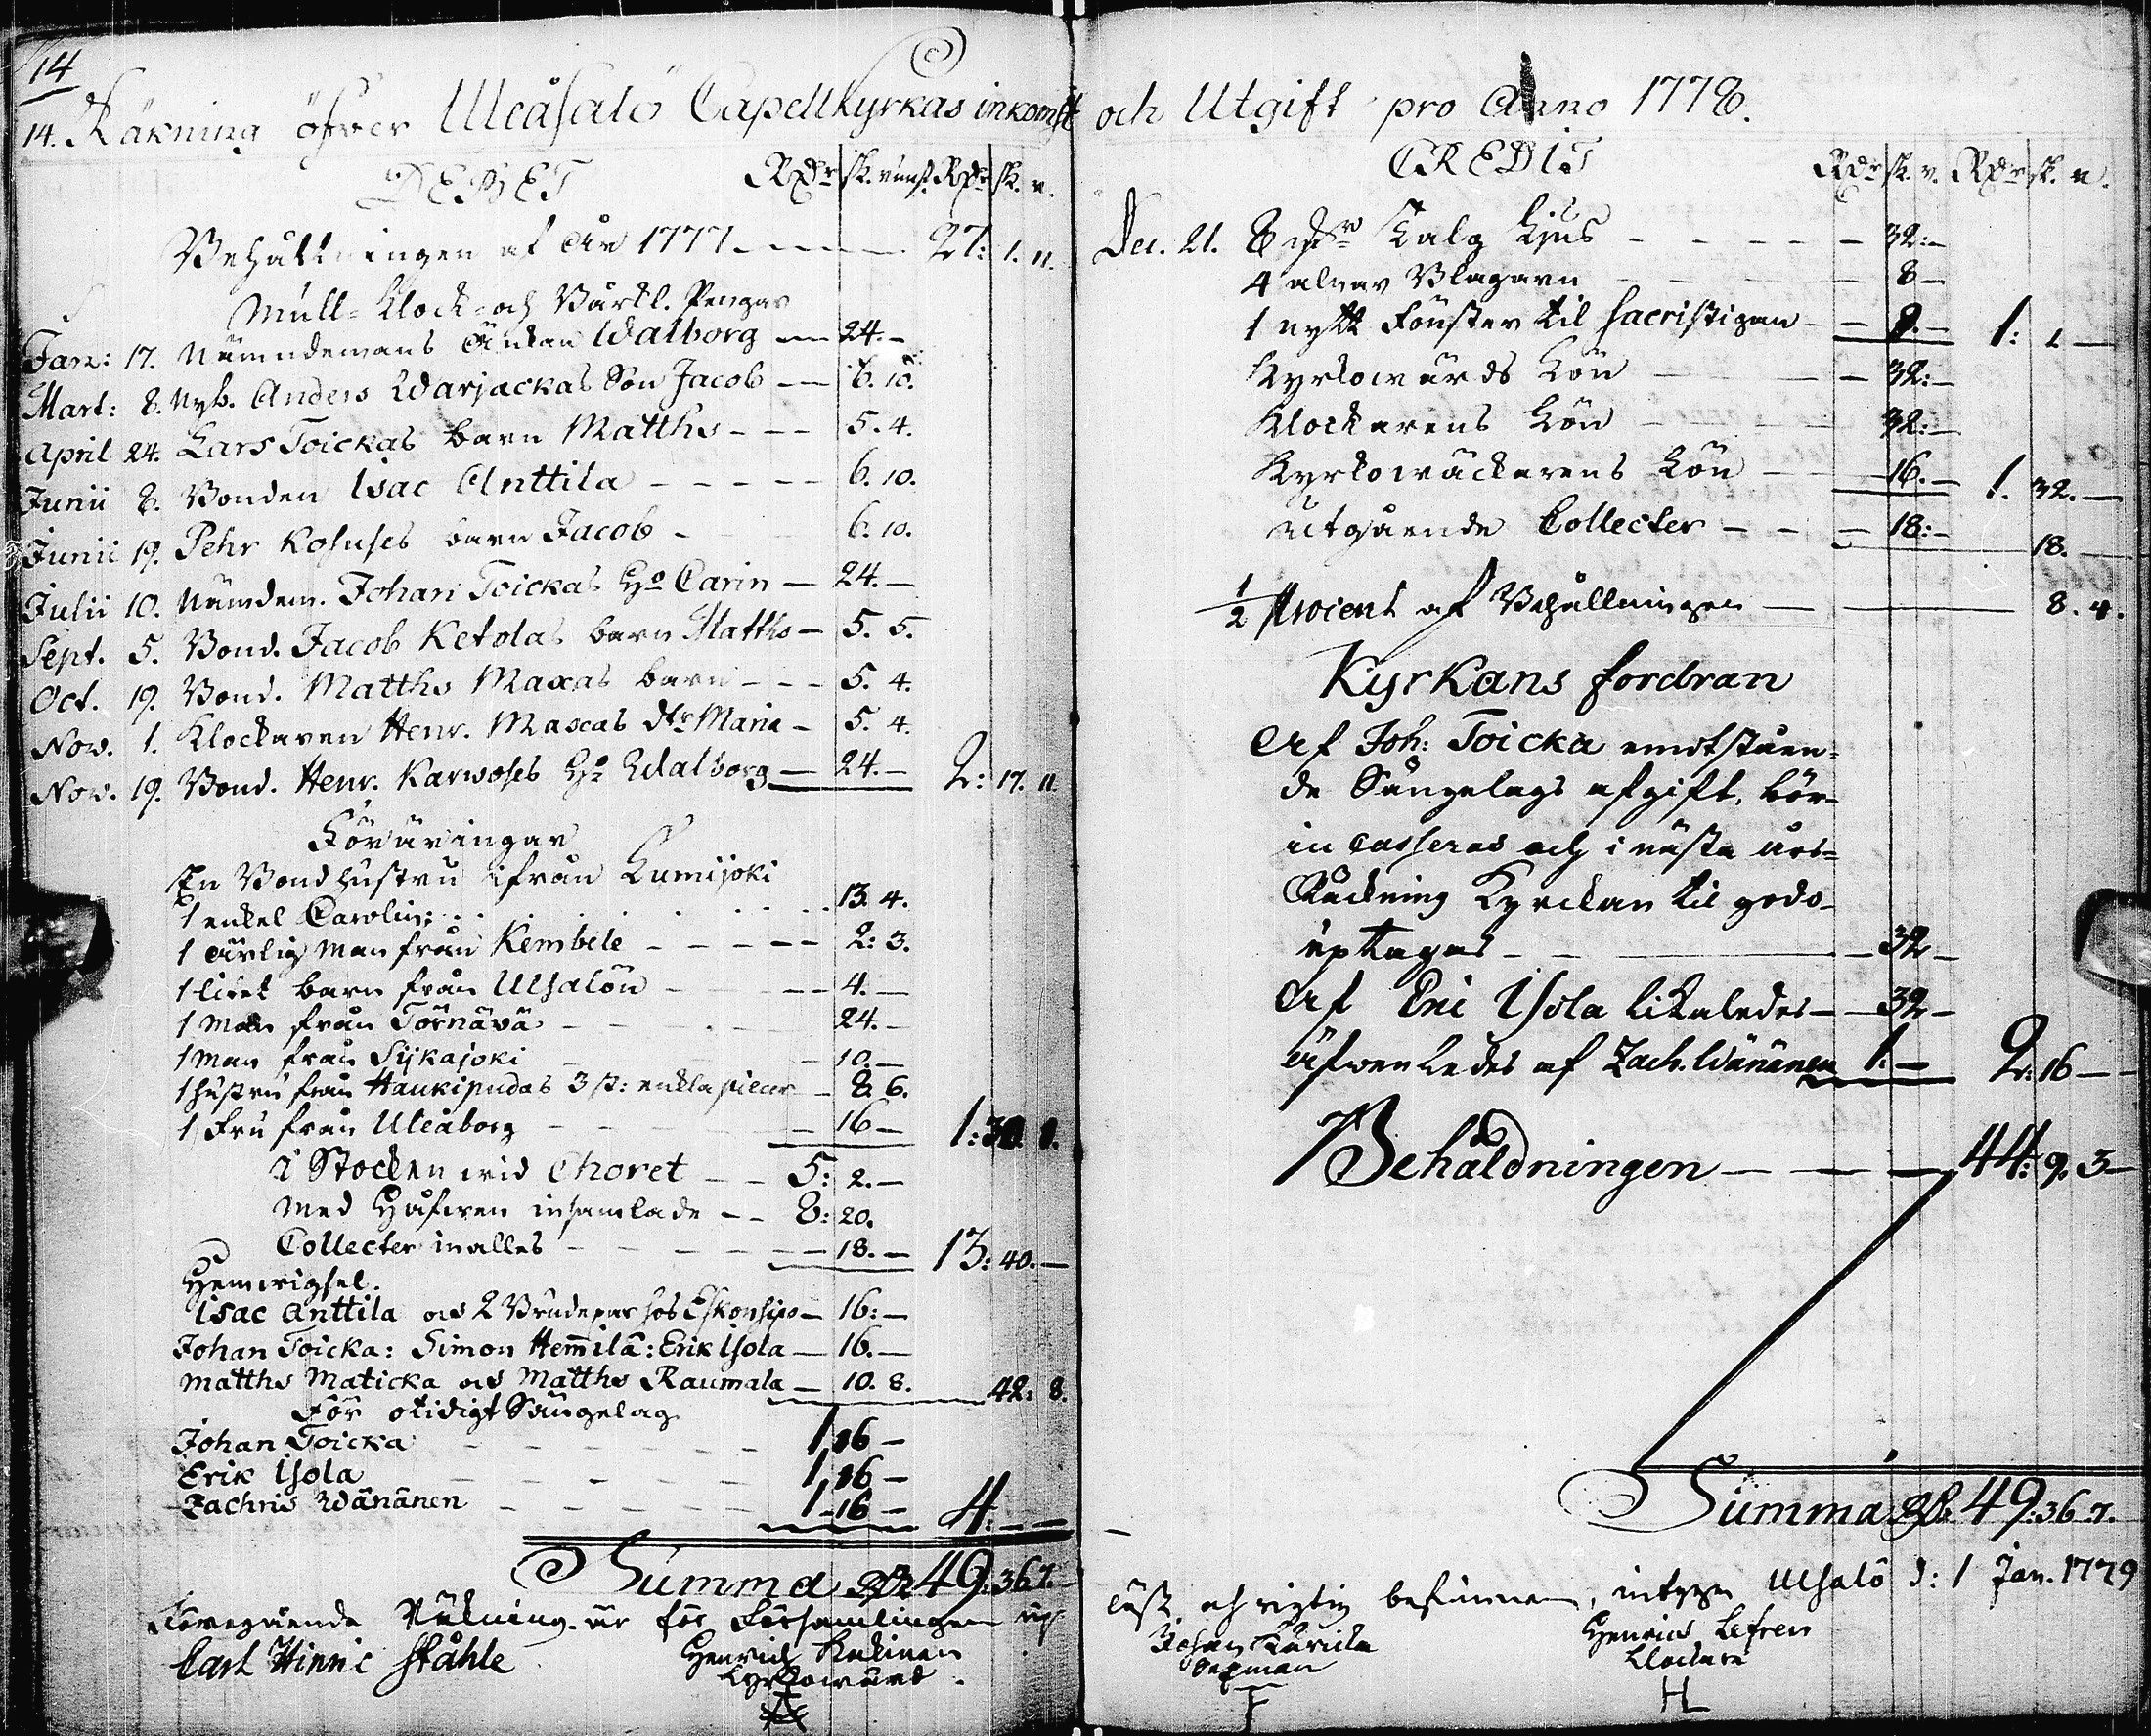 14
14. Räkning öfver Uleåsalö Capellkyrkas inkomst
DEBET
Rdr sk. runst. Rdr sk. r.
Behållningen af År 1777 - - - - 27: 1. 11.
Mull- Klock- och Bårkl. Pengar
Jan: 17. Nämndemans Änkan Walborg - 24. -
Mart: 8. Nyb. Anders Warjackas Son Jacob - - 6. 10.
April 24. Lars Toickas barn Matths - - - 5. 4.
Junii 8. Bonden Isac Anttila - - - - - 6. 10.
Junii 19. Pehr Kosuses barn Jacob - 6. 10.
Julii 10. Nämdem. Johan Toickas Ho Carin - 24. -
Sept. 5. Bond. Jacob Ketolas barn Matths - 5. 5.
Oct. 19. Bond. Matths Maxas barn - - - 5. 4.
Now. 1. Klockaren Henr. Maxas dtr Maria - 5. 4.
Now. 19. Bond. Henr. Karwoses Ho Walborg - 24. - 2: 17. 11.
Föräringar
En Bondhustru ifrån Lumijoki
1 enkel Carolin: . . . . . . . 13. 4.
1 ärlig Man från Kembele - - - - - 2: 3.
1 litet barn från Ulsalön - - - - 4. -
1 Man från Törnävä - - - - 24. -
1 Man från Sijkajoki - - 10. -
1 hustru från Haukipudas 3 st: enkla piecer - 8. 6.
1 Fru från Uleåborg - - - - 16 - 1: 30. 1.
I Stocken wid Choret - - 5: 2. -
Med Håfwen insamlade - - 8: 20.
Collecter in alles - - - - - 18. - 13: 40. -
Hemwigsel.
Isac Anttila och 2 Brudepar hos Eskonsipo - 16: -
Johan Toicka: Simon Hem̄ilä: Erik Isola - 16. -
Matths Maticka och Matths Raumala - 10. 8. 42: 8.
För otidigt Sängelag
Johan Toicka - - - - - - 1 16 -
Erik Isola - - - - - 1, 16 -
Zachris Wänänen - - - - - 1 - 16 - 4: - -
Summa Rdr 49: 36 7.
Föregående Räkning är för Församlingen up-
Carl Hinric Ståhle
Henrich
Kyrkowärd.
och Utgift pro Anno 1778.
CREDIT
Rdr sk. r. Rdr sk. r.
Dec. 21. 8 Talg Ljus - - - - - 32: -
4 alnar Blagarn - - - 8 -
1 nytt Fönster til Sacristigan - - 9. - 1: 1 -
Kyrkowärds Lön - - - 32: -
Klockarens Lön - - - 32: -
Kyrkowäckarens Lön - - 16. - 1. 32. -
Utgående Collecter - - - 18: -
18. -
½ Procent af Behållningen - - - 8. 4.
Kyrkans fordran
Af Joh: Toicka emotståen-
de Sängelags afgift, bör-
in casseras och i nästa års-
Räckning Kyrckan til godo-
uptagas - - - - 32 -
Af Eric Isola likaledes - - 32 -
äfwenledes af Zach. Wänänen 1: - 2: 16 - -
Behåldningen - - - 44: 9. 3 -
Summa Rdr 49: 36 7.
läst och rigtig befunnen, intyga Ulsalö d: 1 Jan. 1779
Johan
Sexman
F
Henrics Lefren
Klockare
H